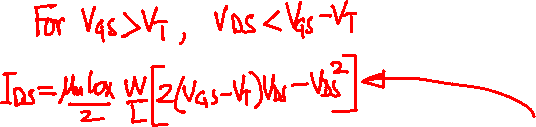 For V_GS > V_T, V_DS < V_GS - V_T
I_DS = μ_n C_ox / 2 W/L [2(V_GS - V_T)V_DS - V_DS²]